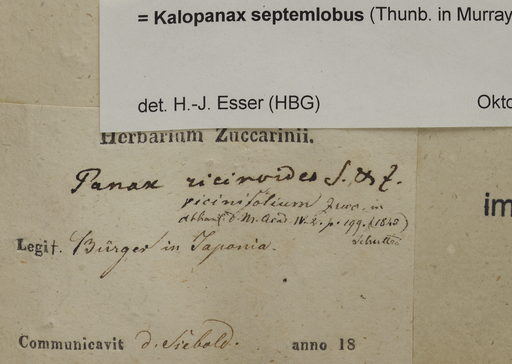 = Kalopanax septemlobus (Thunb. in Murray
det. H.-J. Esser (HBG) Okto
Herbarium Zuccarinii.
Panax ricinoides S. & Z.
ricinifolium Zucc. in
Abhandl. d. M. Acad. IV. 2. p. 199. (1845)
Legit. Bürger in Japonia.
im
Communicavit d. Siebold. anno 18